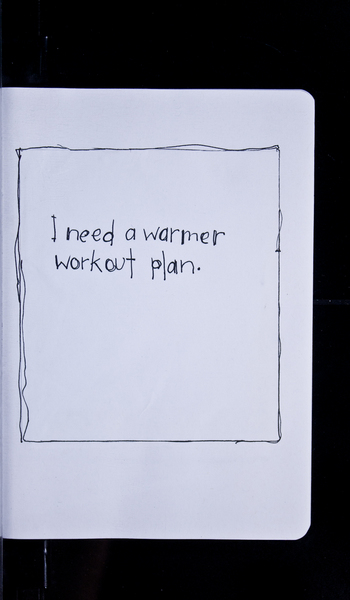 I need a warmer
workout plan.